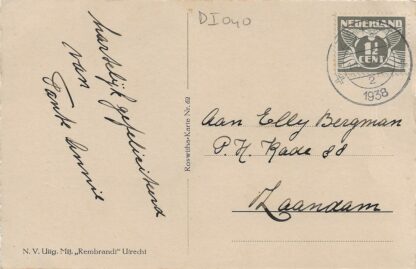 DI040
NEDERLAND
1½
CENT
2
1938
hartelijk gefeliciteerd
van
Tante Annie
Roswitha-Karte Nr. 62
Aan Elly Bergman
P. H. Kade 88
Zaandam
N. V. Uitg. Mij. „Rembrandt" Utrecht